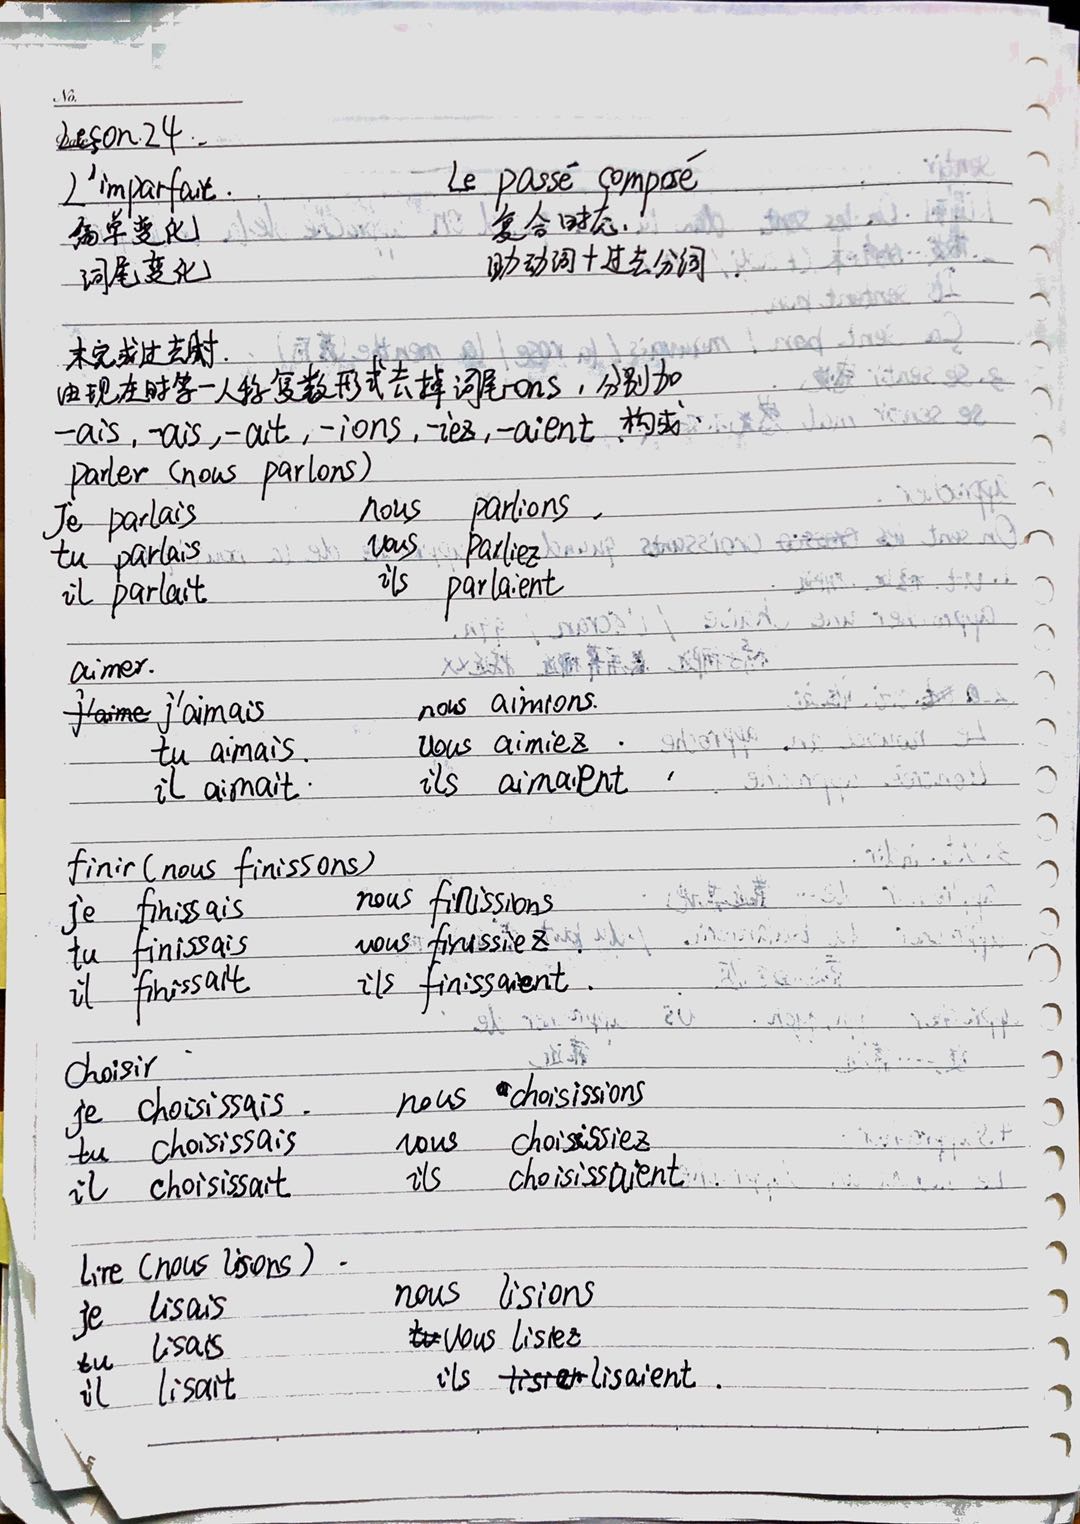 No.
Lesson.24.
L'imparfait. Le passé composé
简单变化 复合时态.
词尾变化 助动词+过去分词.
未完成过去时.
由现在时第一人称复数形式去掉词尾-ons,分别加
-ais,-ais,-ait,-ions,-iez,-aient 构成.
parler (nous parlons)
Je parlais nous parlions
tu parlais vous parliez
il parlait ils parlaient
aimer.
j'aime j'aimais nous aimions.
tu aimais. vous aimiez.
il aimait. ils aimaient
finir (nous finissons)
je finissais nous finissions
tu finissais vous finissiez.
il finissait ils finissaient.
Choisir
je choisissais. nous choisissions
tu choisissais vous choisissiez
il choisissait ils choisissaient
Lire (nous lisons).
je lisais nous lisions
tu lisais tu vous lisiez
il lisait ils lisaient.